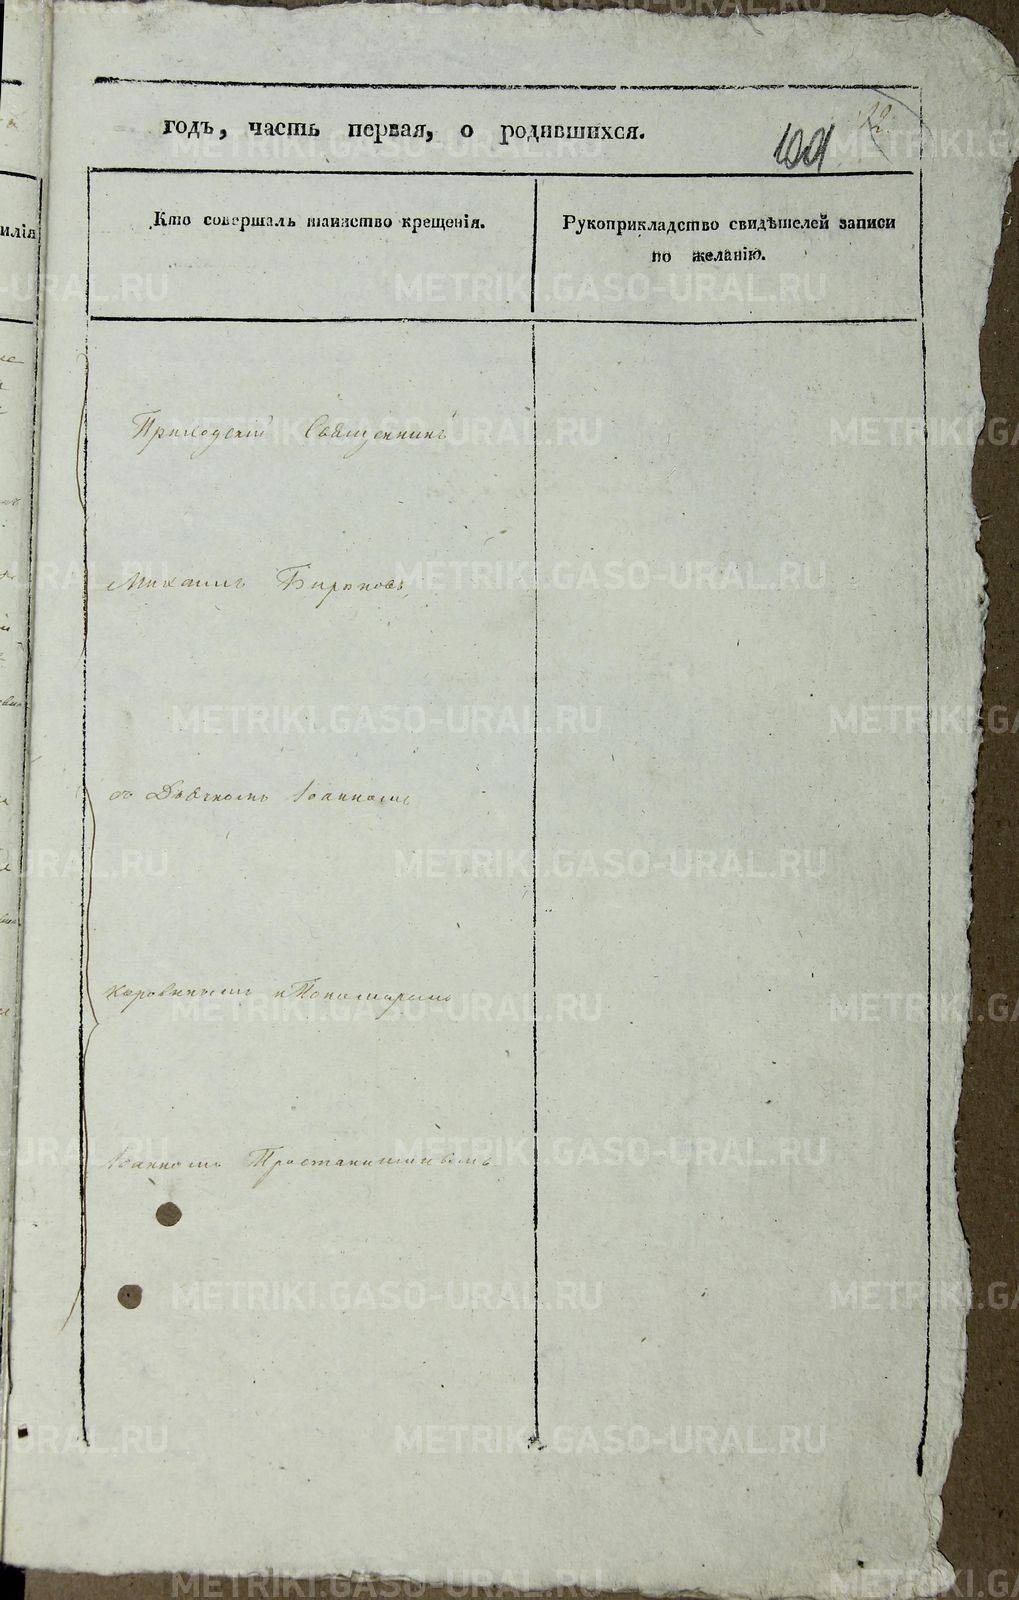 годъ, часть первая, о родившихся.
101
12
Кто совершалъ таинство крещенія.
Рукоприкладство свидѣтелей записи
по желанію.
Приходскій Священникъ
Михаилъ Бирюковъ
съ Дьячкомъ Іоанномъ
и Пономаремъ
Іоанномъ
METRIKI.GASO-URAL.RU